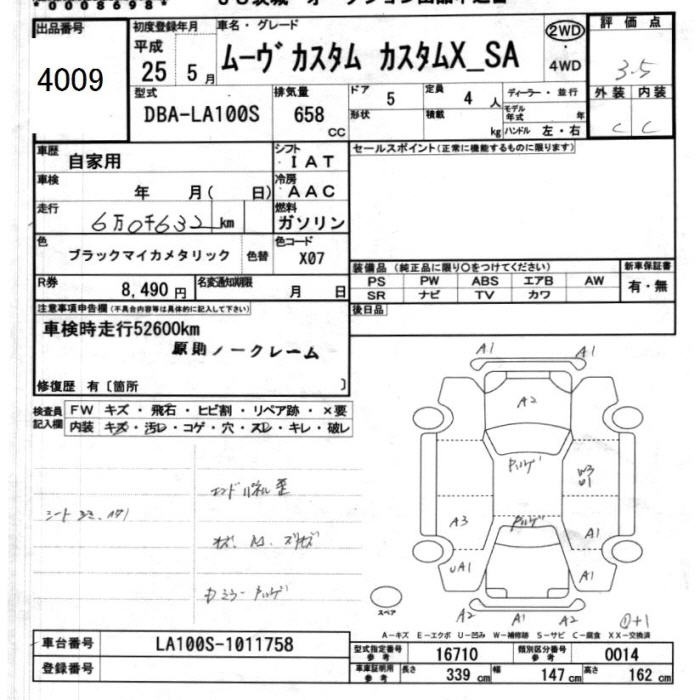 *0008698*
出品番号
4009
初度登録年月
平成
25 5月
車名・グレード
ムーヴ カスタム カスタムX_SA
2WD
・
4WD
評価点
3.5
外装 内装
C C
型式
DBA-LA100S
排気量
658
CC
ドア
5
形状
定員
4 人
積載
kg
ディーラー・並行
モデル
年式 年
ハンドル 左・右
車歴
自家用
シフト
IAT
車検
年 月( 日)
冷房
AAC
走行
6万0千632km
燃料
ガソリン
色
ブラックマイカメタリック
色替
色コード
X07
R券
8,490円
名変通知期限
月 日
セールスポイント(正常に機能するものに限ります)
装備品(純正品に限り○をつけてください)
PS PW ABS エアB AW
SR ナビ TV カワ
新車保証書
有・無
後日品
注意事項申告欄(不具合内容等は具体的に記入して下さい)
車検時走行52600km
原則ノークレーム
修復歴 有〔箇所 〕
検査員
記入欄
FW キズ・飛石・ヒビ割・リペア跡・×要
内装 キズ・汚レ・コゲ・穴・スレ・キレ・破レ
エンドパネル歪
A1 A1
A2
W3
U1
A3
A1
UA1
A1
A2 A1 A2
スペア
A-キズ E-エクボ U-凹み W-補修跡 S-サビ C-腐食 XX-交換済
車台番号
LA100S-1011758
登録番号
型式指定番号
参考
16710
類別区分番号
参考
0014
車庫証明用
参考
長さ
339 cm
幅
147 cm
高さ
162 cm